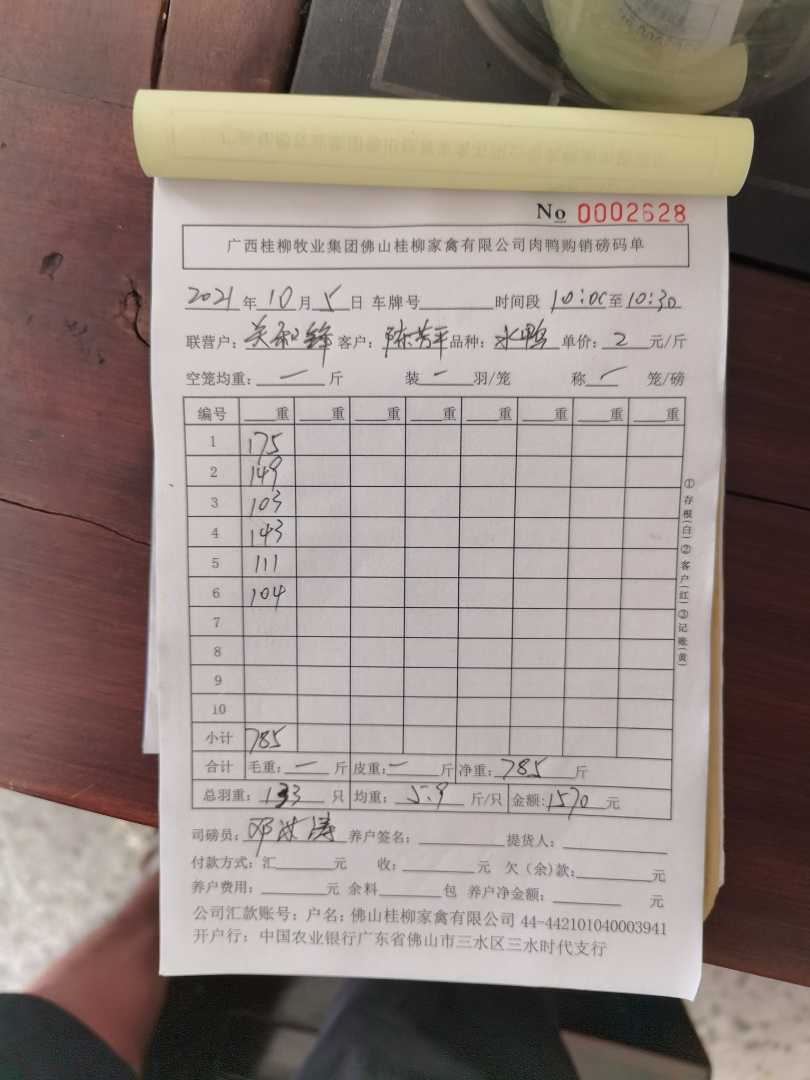 No 0002628
广西桂柳牧业集团佛山桂柳家禽有限公司肉鸭购销磅码单
2021年10月5日 车牌号 时间段 10:00至10:30
联营户:关和锋 客户:陈芳平 品种:水鸭 单价:2元/斤
空笼均重:一斤 装一羽/笼 称一笼/磅
编号 重 重 重 重 重 重 重 重
1 175
2 149
3 103
4 143
5 111
6 104
7
8
9
10
小计 785
合计 毛重:一斤 皮重:一斤 净重:785斤
总羽重:133只 均重:5.9斤/只 金额:1570元
司磅员:邓洪涛 养户签名: 提货人:
付款方式:汇 元 收: 元 欠(余)款: 元
养户费用: 元 余料 包 养户净金额: 元
公司汇款账号:户名:佛山桂柳家禽有限公司 44-442101040003941
开户行:中国农业银行广东省佛山市三水区三水时代支行
①存根(白)②客户(红)③记账(黄)